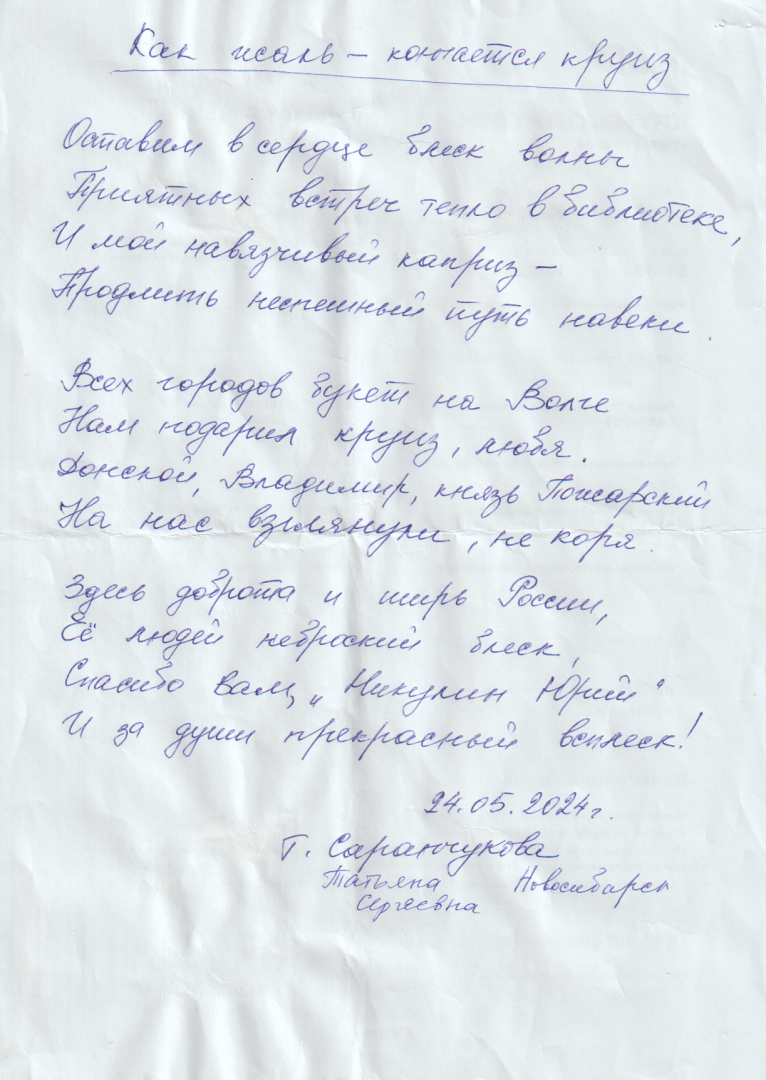 Как жаль – кончается круиз
Оставим в сердце блеск волны
Приятных встреч тепло в библиотеке,
И мой навязчивый каприз –
Продлить неспешный путь навеки.
Всех городов букет на Волге
Нам подарил круиз, любя.
Донской, Владимир, князь Пожарский
На нас взглянули, не коря.
Здесь доброта и ширь России,
Её людей неброский блеск,
Спасибо вам, „Никулин Юрий"
И за души прекрасный всплеск!
24.05.2024г.
Т. Саранчукова
Татьяна Новосибирск
Сергеевна